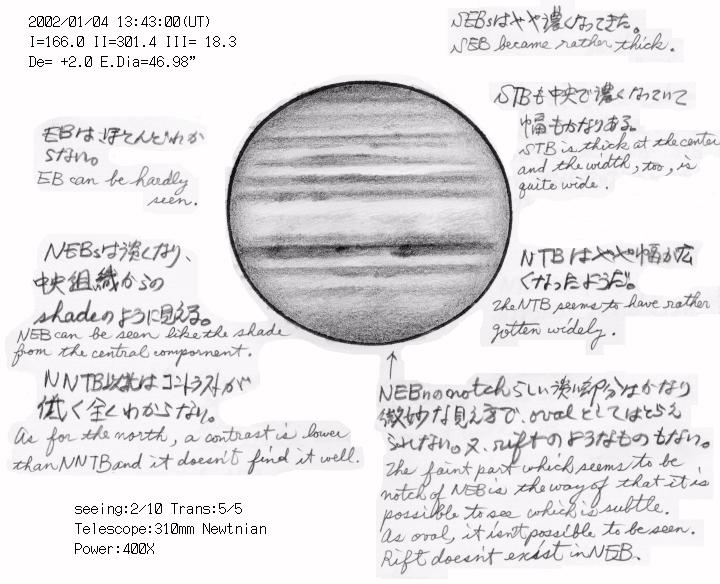 2002/01/04 13:43:00(UT)
I=166.0 II=301.4 III= 18.3
De= +2.0 E.Dia=46.98"
NEBsはやや濃くなってきた。
NEB became rather thick.
STBも中央で濃くなっていて
幅もかなりある。
STB is thick at the center
and the width, too, is
quite wide.
EBはほとんどわか
らない。
EB can be hardly
seen.
NEBsは淡くなり、
中央組織からの
shadeのように見える。
NEB can be seen like the shade
from the central compornent.
NTBはやや幅が広
くなったようだ。
The NTB seems to have rather
gotten widely.
NNTB以北はコントラストが
低く全くわからない。
As for the north, a contrast is lower
than NNTB and it doesn't find it well.
↑
NEBnのnotchらしい淡い部分はかなり
微妙な見え方で、ovalとしてはとらえ
られない。又、riftのようなものもない。
The faint part which seems to be
notch of NEB is the way of that it is
possible to see which is subtle.
As oval, it isn't possible to be seen.
Rift doesn't exist in NEB.
seeing:2/10 Trans:5/5
Telescope:310mm Newtnian
Power:400X